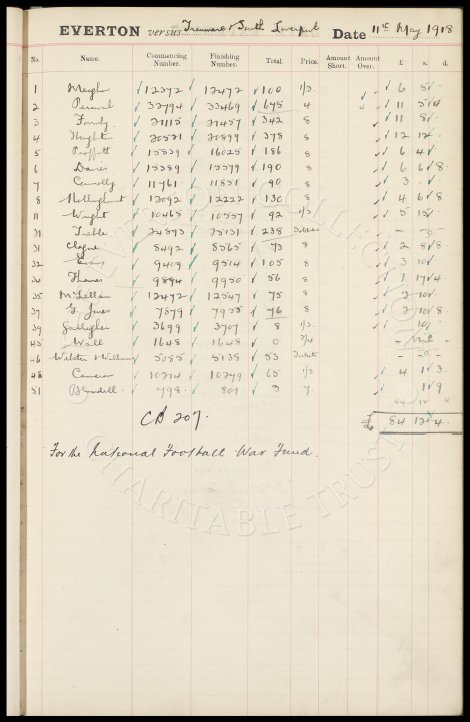 EVERTON versus Tranmere & South Liverpool Date 11th May 1918
No. Name. Commencing Number. Finishing Number. Total. Price. Amount Short. Amount Over. £ s. d.
1 Meagher 12372 12472 100 1/3 6 5
2 Percival 32794 33469 675 4 11 5 4
3 31115 31457 342 8 11 8
4 Houghton 20521 20899 378 8 12 12
5 15839 16025 186 8 6 4
6 Davies 15389 15579 190 8 6 6 8
7 Connolly 11761 11851 90 8 3
8 12092 12222 130 8 4 6 8
11 Wright 10465 10557 92 1/3 5 15
31 Treble 24893 25131 238
31 Clague 8492 8565 73 8 2 8 8
32 Evans 9409 9514 105 8 3 10
34 Thomas 9894 9950 56 8 1 17 4
35 McLellan 12472 12547 75 8 2 10
37 G. Jones 7879 7955 76 8 2 10 8
39 Gallagher 3699 3707 8 1/3 10
45 Wall 1648 1648 0 2/4 Nil
46 Webster & William 5085 5138 53
48 Cameron 10214 10279 65 1/3 4 1 3
51 Blundell 798 801 3 7 1 1 9
£ 84 12 4
CB 207.
For the National Football War Fund.
EVERTON COLLECTION
CHARITABLE TRUST